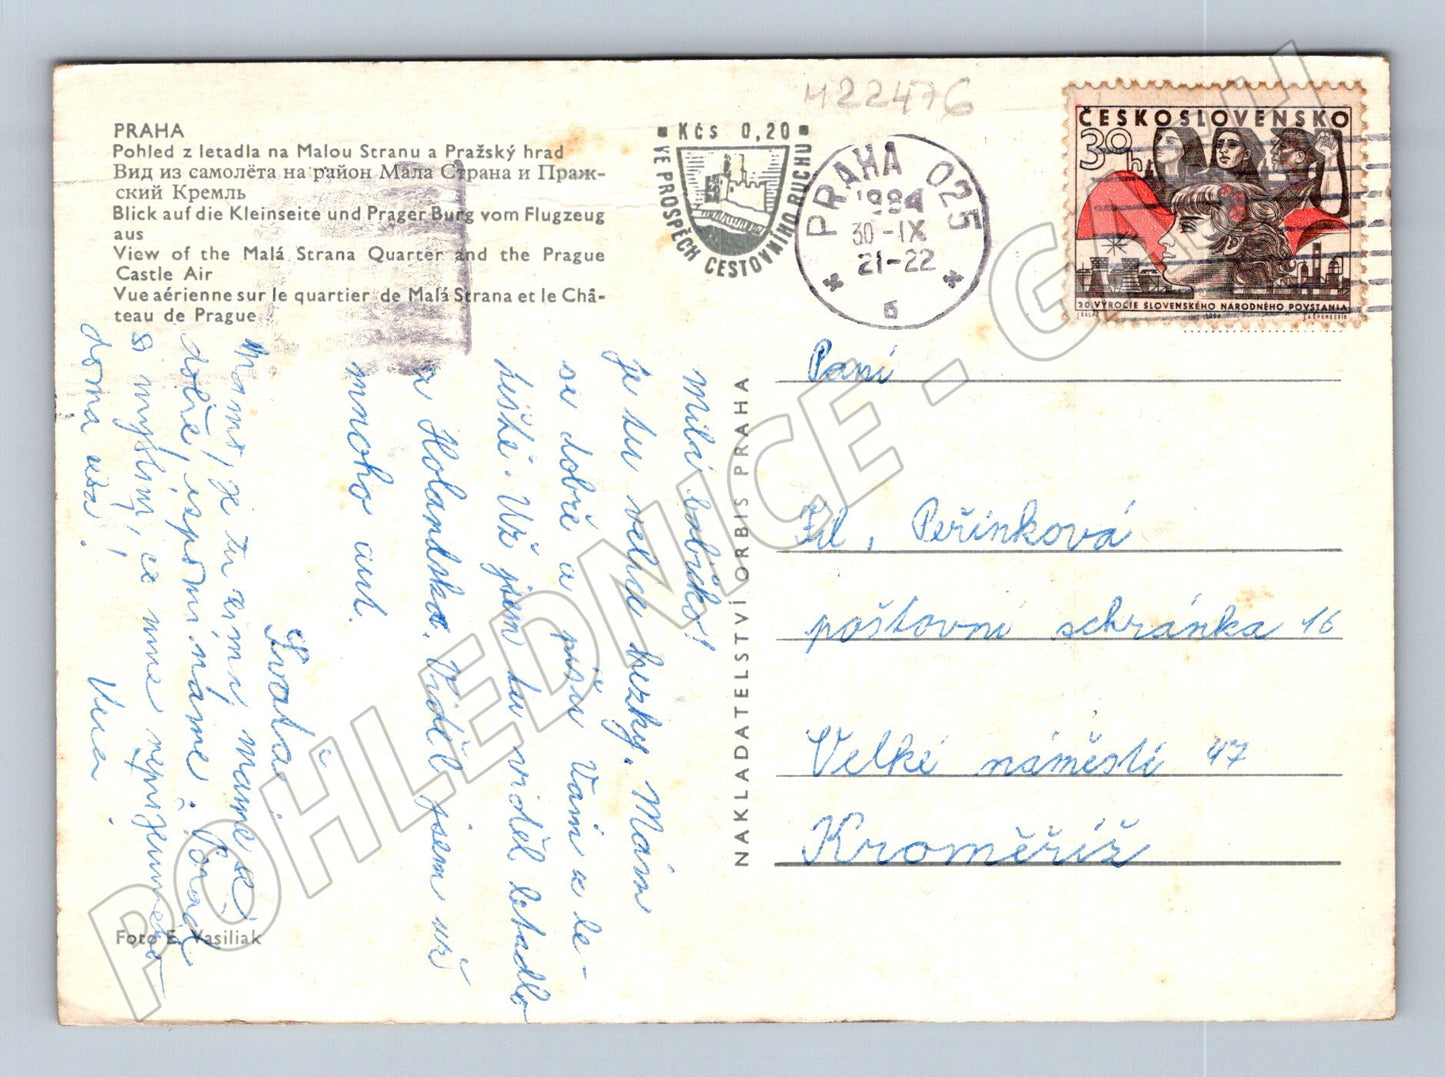 PRAHA
Pohled z letadla na Malou Stranu a Pražský hrad
Вид из самолёта на район Мала Страна и Праж-
ский Кремль
Blick auf die Kleinseite und Prager Burg vom Flugzeug
aus
View of the Malá Strana Quarter and the Prague
Castle Air
Vue aérienne sur le quartier de Malá Strana et le Châ-
teau de Prague
Kčs 0,20
VE PROSPĚCH CESTOVNÍHO RUCHU
H22476
PRAHA 025
30-IX
21-22
6
ČESKOSLOVENSKO
30h
20. VÝROČIE SLOVENSKÉHO NÁRODNÉHO POVSTANIA
Milá babičko!
je tu velice hezky. Mám
se dobře a píšu Vám z le-
tiště. Už jsem tu viděl letadlo
z Holandska. Viděl jsem už
mnoho aut.
Svaťa.
dobře, vzpomínáme.
doma
NAKLADATELSTVÍ ORBIS PRAHA
Paní
Peřinková
poštovní schránka 16
Velké náměstí 47
Kroměříž
Foto E. Vasiliak
POHLEDNICE - GALCH